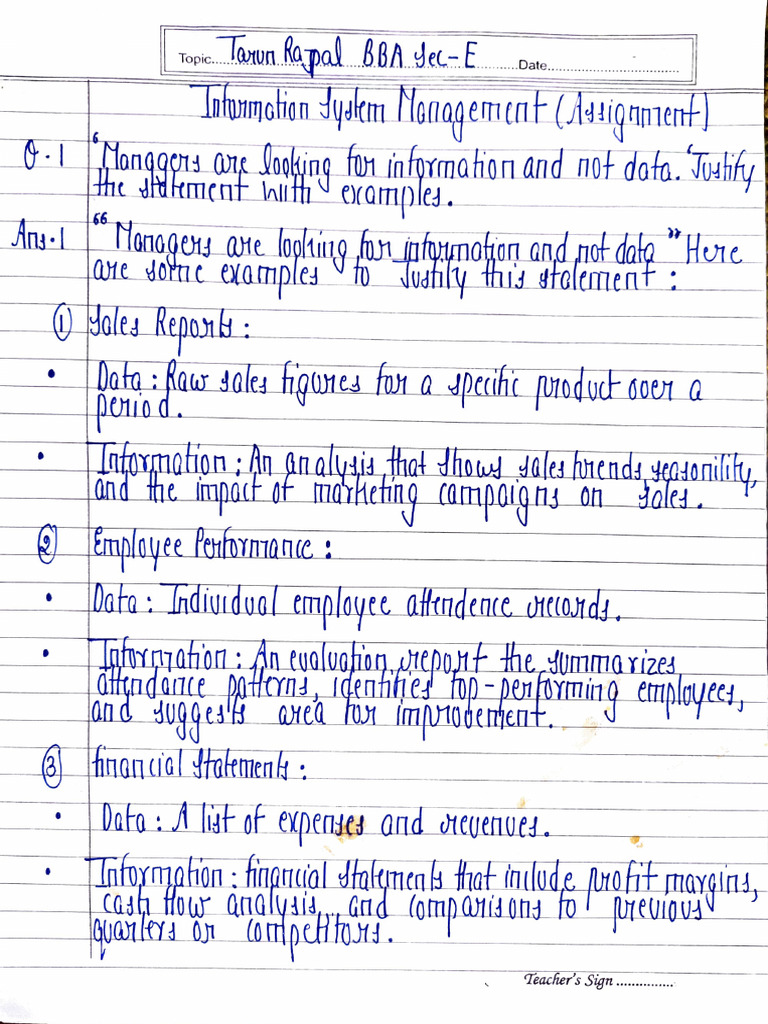 Topic.....Tarun Rajpal BBA Sec-E.....Date..............................
Information System Management (Assignment)
Q.1 "Managers are looking for information and not data. "Justify
the statement with examples.
Ans.1 "Managers are looking for information and not data" Here
are some examples to Justify this statement :
① Sales Reports :
• Data : Raw sales figures for a specific product over a
period.
• Information : An analysis that shows sales trends, seasonility,
and the impact of marketing campaigns on sales.
② Employee Performance :
• Data : Individual employee attendence records.
• Information : An evaluation report the summarizes
attendance patterns, identifies top-performing employees,
and suggests area for improvement.
③ financial Statements :
• Data : A list of expenses and revenues.
• Information : financial statements that include profit margins,
cash flow analysis, and comparisons to previous
quarters or competitors.
Teacher's Sign ...............